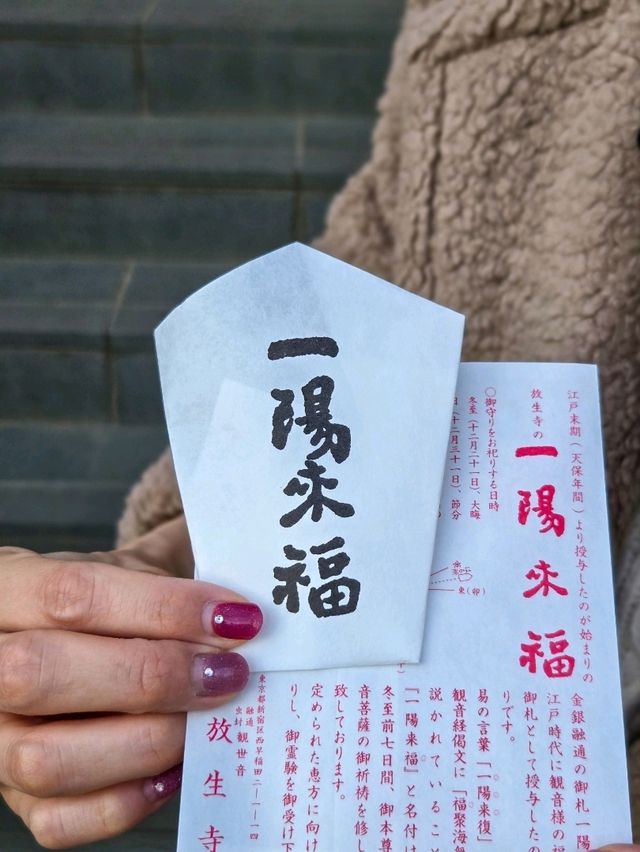 一陽来福
江戸末期（天保年間）より授与したのが始まりの
放生寺の
一陽来福
○御守りをお祀りする日時
冬至（十二月二十一日）、大晦
日（十二月三十一日）、節分
東（卯）
金銀融通の御札一陽
江戸時代に観音様の福
御札として授与したの
りです。
易の言葉「一陽来復」
観音経偈文に「福聚海無
説かれていること
「一陽来福」と名付け
冬至前七日間、御本尊
音菩薩の御祈祷を修し
致しております。
定められた恵方に向け
りし、御霊験を御受け下
東京都新宿区西早稲田二-一-一四
融通
虫封
観世音
放生寺